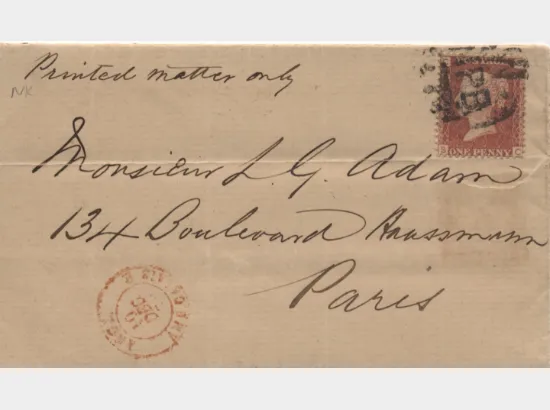 Printed matter only
NK
ONE PENNY
Monsieur L. G. Adam
134 Boulevard Haussmann
Paris